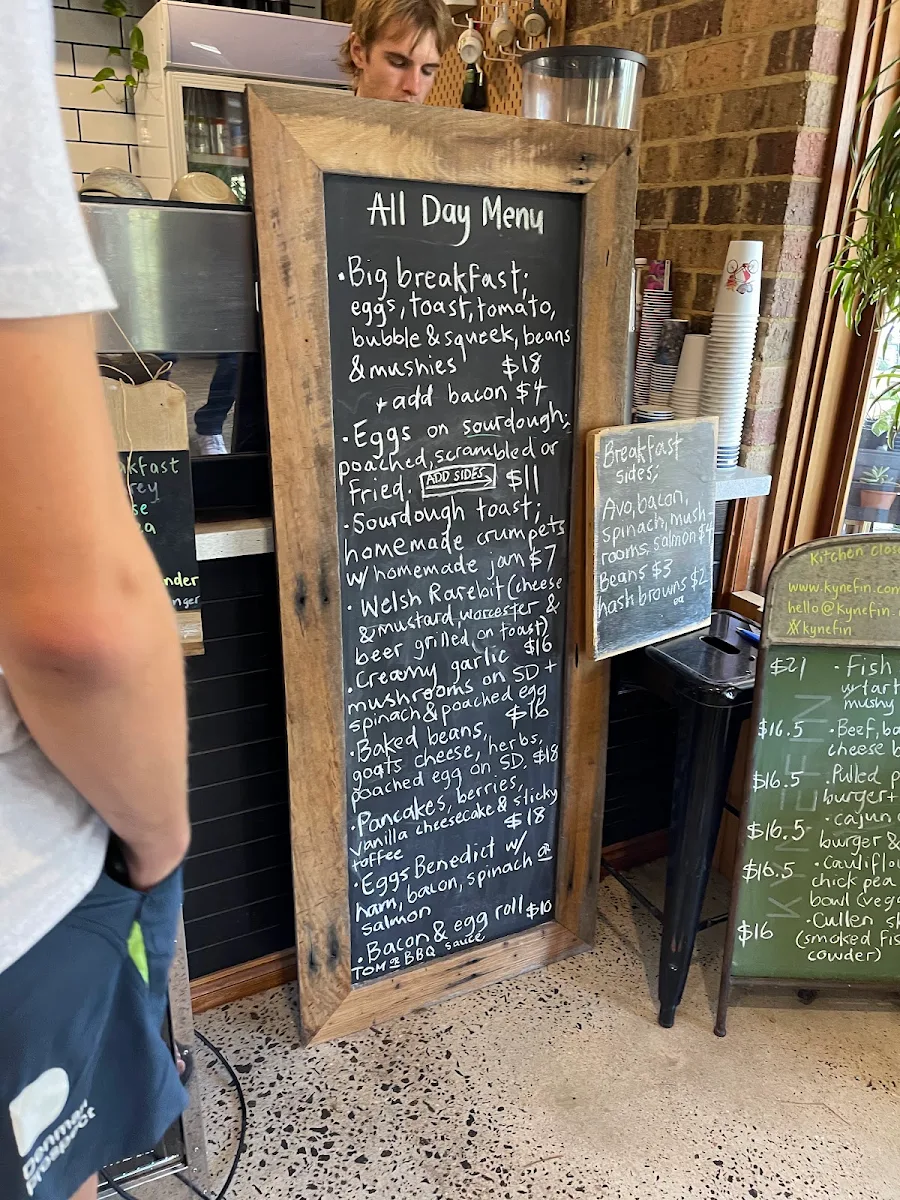 All Day Menu
•Big breakfast;
eggs, toast, tomato,
bubble & squeek, beans
& mushies $18
+ add bacon $4
•Eggs on sourdough;
poached, scrambled or
fried. ADD SIDES $11
•Sourdough toast;
homemade crumpets
w/ homemade jam $7
•Welsh Rarebit (cheese
& mustard, worcester &
beer grilled on toast)
$16
•Creamy garlic
mushrooms on SD +
spinach & poached egg
$16
•Baked beans,
goats cheese, herbs,
poached egg on SD. $18
•Pancakes, berries,
vanilla cheesecake & sticky
toffee $18
•Eggs Benedict w/
ham, bacon, spinach or
salmon
•Bacon & egg roll $10
TOM or BBQ sauce
Breakfast
sides;
Avo, bacon,
spinach, mush-
rooms, salmon $4
Beans $3
hash browns $2
ea
kfast
rey
se
a
nder
nger
Kitchen close
www.kynefin.com
hello@kynefin.
kynefin
KYNEFIN
$21 •Fish
w tart
mushy
$16.5 •Beef, ba
cheese b
$16.5 •Pulled p
burger +
$16.5 •cajun c
burger &
$16.5 •Cauliflo
chick pea
bowl (veg
$16 •Cullen sk
(smoked fis
cowder)
Denmar
prospect